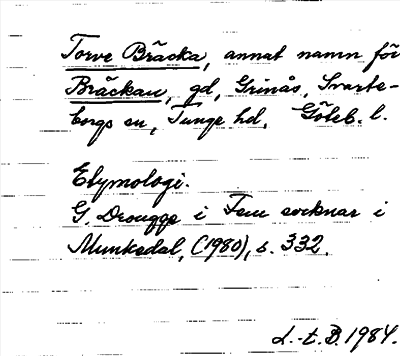 Torve Bräcka, annat namn för
Bräckan, gd, Grinås, Svarte-
borgs sn, Tunge hd, Göteb. l.
Etymologi.
G. Drougge i Fem socknar i
Munkedal, (1980), s. 332.
L.-t. B. 1984.